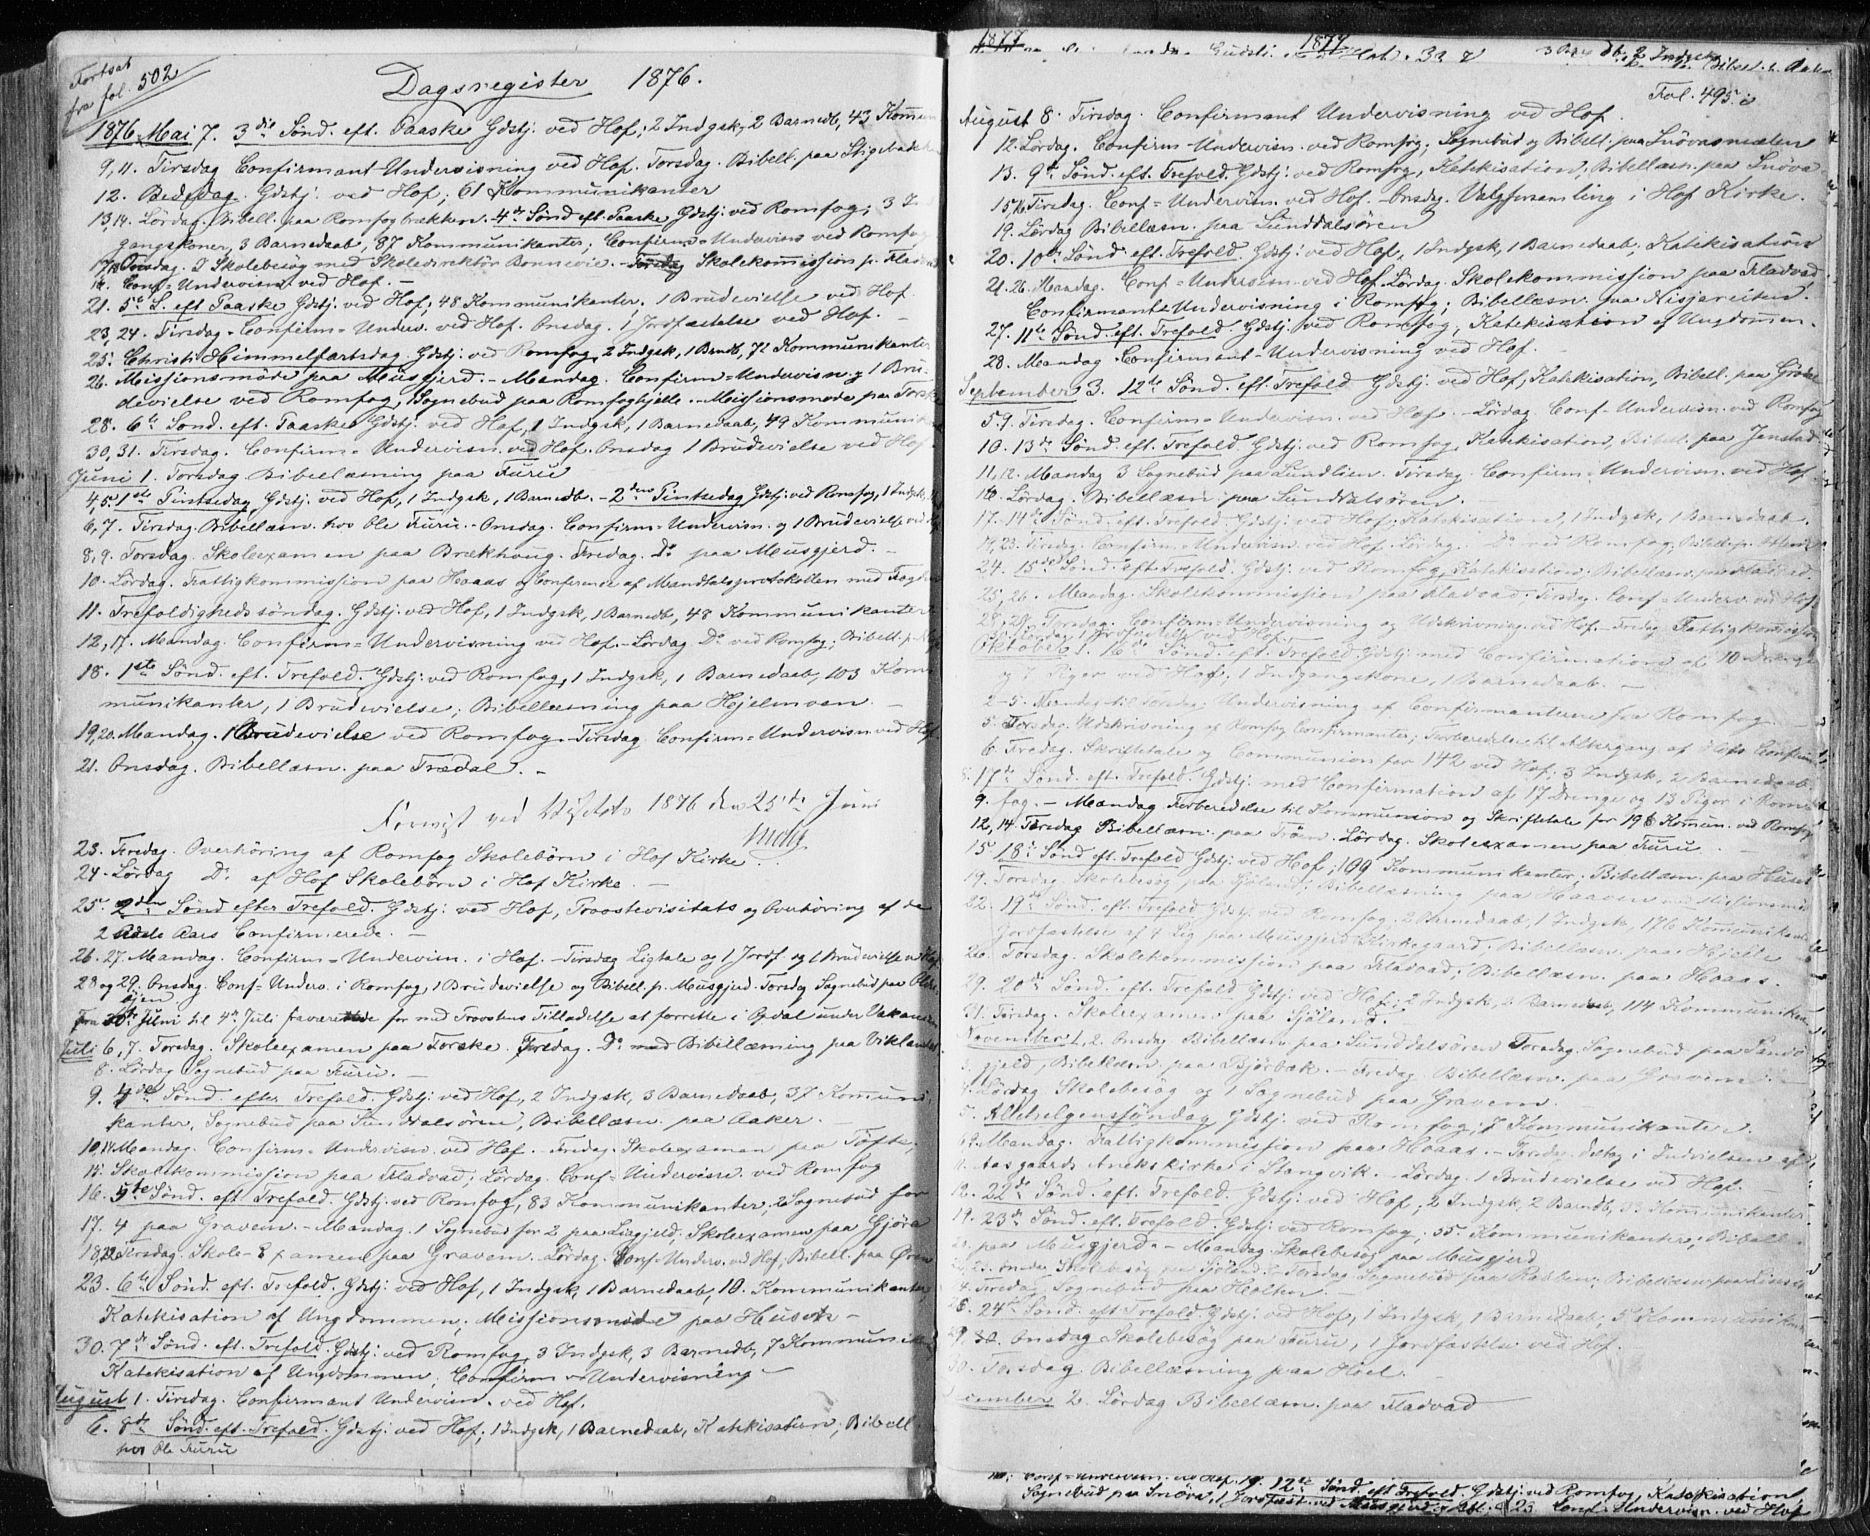 Fortsat
fra fol. 502
Dagsregister 1876.
1876 Mai 7. 3die Sönd. eft. Paaske Gdstj. ved Hof; 2 Indgsk, 2 Barnedb, 43 Komm
9, 11. Tirsdag Confirmant Undervisning ved Hof. Torsdag. Bibell. paa
12. Bededag. Gdstj. ved Hof; 61 Kommunikanter
13, 14. Lördag. Bibell. paa Romfogbakken. 4de Sönd eft. Paaske Gdstj. ved Romfog; 3 Ind
gangskoner, 3 Barnedaab, 87 Kommunikanter; Confirm=Undervisn ved Romfog
Skolebesög med Skoledirektör Bonnevie. Skolekommission p. Fladvad
Conf=Undervisn ved Hof. –
21. 5te S. eft Paaske Gdstj. ved Hof; 48 Kommunikanter; 1 Brudevielse ved Hof
23, 24. Tirsdag. Confirm=Underv. ved Hof. Onsdag. 1 Jordfæstelse ved Hof. –
25. Christi Himmelfartsdag. Gdstj. ved Romfog, 2 Indgsk, 1 Brndb, 71 Kommunikanter
26. Missionsmöde paa Musgjerd. – Mandag. Confirm=Undervisn og 1 Bru-
devielse ved Romfog; Sognebud paa Romfoghjelle. Missionsmöde paa Torske
28. 6te Sönd. eft. Paaske Gdstj. ved Hof, 1 Indgsk, 1 Barnedaab, 49 Kommunik
30, 31. Tirsdag. Confirm=Undervisn. ved Hof. Onsdag 1 Brudevielse ved Hof
Juni 1. Torsdag Bibellæsning paa Furu
4, 5. 1ste Pintsedag Gdstj. ved Hof, 1 Indgsk, 1 Barnedb. – 2den Pintsedag Gdstj. ved Romfog, 1 Indgk,
6, 7. Tirsdag. Bibellæsn. hos Ole Furu. – Onsdag. Confirm=Undervisn. og 1 Brudevielse ved
8, 9. Torsdag. Skoleexamen paa Brækhaug. Fredag. Do paa Musgjerd. –
10. Lördag. Fattigkommission paa Hoaas og Conference af Mandtalsprotokollen med
11. Trefoldigheds söndag. Gdstj. ved Hof, 1 Indgsk, 1 Barnedb, 48 Kommunikanter
12, 17. Mandag. Confirm=Undervisning ved Hof. – Lördag Do ved Romfog; Bibell. p.
18. 1ste Sönd. eft. Trefold. Gdstj. ved Romfog, 1 Indgsk, 1 Barnedaab, 103 Kom
munikanter, 1 Brudevielse; Bibellæsning paa Hjelmven. –
19, 20. Mandag. 1 Brudevielse ved Romfog. Tirsdag Confirm=Undervisn ved Hof.
21. Onsdag. Bibellæsn. paa Trædal. –
ved Visitats 1876 den 25de Juni
23. Fredag. Overhöring af Romfog Skolebörn i Hof Kirke
24. Lördag Do af Hof Skolebörn i Hof Kirke. –
25. 2den Sönd efter Trefold. Gdstj. ved Hof, Provstevisitats og Overhöring af de
2 Aars Confirmerede. –
26. 27. Mandag. Confirm=Undervisn. i Hof. – Tirsdag Ligtale og 1 Jordf og 1 Brudevielse ved Hof
28 og 29. Onsdag. Conf=Underv. i Romfog, 1 Brudevielse og Bibell. p. Musgjerd. Torsdag Sognebud paa
Fra 30te Juni til 4de Juli fraværende for med Provstens Tilladelse at forrette i Opdal under Vakancen
Juli 6, 7. Torsdag. Skoleexamen paa Torske. Fredag. Do med Bibellæsning paa Viklandet
8. Lördag Sognebud paa Furu. –
9. 4de Sönd. efter Trefold. Gdstj. ved Hof, 2 Indgsk, 3 Barnedaab, 37 Kommuni-
kanter, Sognebud paa Sunddalsören, Bibellæsn. paa Aaker. –
10, 14. Mandag. Confirm=Undervisn ved Hof. Fredag. Skoleexamen paa Töfte.
15. Skolekommission paa Fladvad; Lördag. Conf=Undervisn. ved Romfog
16. 5te Sönd. eft. Trefold. Gdstj. ved Romfog, 83 Kommunikanter, 2 Sognebud for
17. 4 paa Gravem. – Mandag. 1 Sognebud for 2 paa Skoleexamen paa Gjöra
18, 22. Tirsdag. Skole-Examen paa Gravem. Lördag. Conf=Underv. ved Hof, Bibell. paa Ören
23. 6te Sönd. eft. Trefold. Gdstj. ved Hof, 1 Indgsk, 1 Barnedaab, 10 Kommunikanter,
Katekisation af Ungdommen; Missionsmöde paa Huset –
30. 7de Sönd. eft. Trefold. Gdstj. ved Romfog, 3 Indgsk, 3 Barnedb, 7 Kommunik
Katekisation af Ungdommen; Confirm=Undervisning –
August 1. Tirsdag. Confirmant Undervisn. ved Hof.
6. 8de Sönd. eft. Trefold. Gdstj. ved Hof; 1 Indgsk, 1 Barnedaab, Katekisation; Bibell
hos Ole Furu
1877 1877
Fol. 495
August 8. Tirsdag. Confirmant Undervisning ved Hof.
12. Lördag. Confirm=Undervisn. ved Romfog; Sognebud og Bibell. paa Snövasmælen
13. 9de Sönd. eft. Trefold. Gdstj. ved Romfog, Katekisation, Bibellæsn. paa Snöva
15, 16. Tirsdag. Conf=Undervisn. ved Hof. Onsdag. Valgforsamling i Hof Kirke.
19. Lördag Bibellæsn. paa Sunddalsören
20. 10de Sönd. eft. Trefold. Gdstj. ved Hof, 1 Indgsk, 1 Barnedaab, Katekisation
21. 26. Mandag. Conf=Undervisn. ved Hof. Lördag. Skolekommission paa Fladvad,
Confirmant Undervisning i Romfog; Bibellæsn. paa Nisjareiten.
27. 11te Sönd. eft. Trefold. Gdstj. ved Romfog; Katekisation af Ungdommen.
28. Mandag Confirmant-Undervisning ved Hof.
September 3. 12te Sönd. eft. Trefold. Gdstj. ved Hof, Katekisation, Bibell. paa
5. 9. Tirsdag. Confirm=Undervisn. ved Hof. – Lördag Conf-Undervisn. ved Romfog
10. 13de Sönd. eft. Trefold. Gdstj. ved Romfog, Katekisation, Bibel. paa Jenstad
11, 12. Mandag 3 Sognebud paa Lundlien. Tirsdag. Confirm=Undervisn. ved Hof
16. Lördag. Bibellæsn paa Sunddalsören.
17. 14de Sönd. eft. Trefold. Gdstj. ved Hof, Katekisation, 1 Indgsk, 1 Barnedaab.
19, 23. Tirsdag. Confirm=Undervisn ved Hof. Lördag. Do ved Romfog,
24. 15de Sönd. eft. Trefold. Gdstj. ved Romfog, Katekisation. Bibellæsn. paa Fladvad.
25, 26. Mandag. Skolekommission paa Fladvad. Tirsdag. Conf=Underv. ved Hof.
28, 29. Torsdag. Confirm=Undervisning og Udskrivning ved Hof. Fredag Fattigkommission
1 Jordfæstelse ved Hof.
Oktober 1. 16de Sönd. eft. Trefold Gdstj. med Confirmation af 10 Drenge
og 7 Piger ved Hof, 1 Indgangskone, 1 Barnedaab. –
2-5. Mandag til Torsdag. Undervisning af Confirmanterne fra Romfog
5. Torsdag. Udskrivning af Romfog Confirmanter; Forberedelse til Altergang af Hofs Confirm
6. Fredag. Skriftetale og Communion for 142 ved Hof; 3 Indgsk, 2 Barnedaab.
8. 17de Sönd. eft. Trefold. Gdstj. med Confirmation af 17 Drenge og 13 Piger i Rom-
9. fog. – Mandag Forberedelse til Kommunion og Skriftetale for 196 Komun. ved Romfog
12, 14. Torsdag Bibellæsn. paa Tröen. Lördag. Skoleexamen paa Furu. –
15. 18de Sönd. eft. Trefold. Gdstj. ved Hof, 109 Kommunikanter; Bibellæsn. paa Huset
19. Torsdag. Skolebesög paa Sjöland; Bibellæsning paa Haaven med Missionsmöde
22. 19de Sönd. eft. Trefold. Gdstj. ved Romfog, 2 Barnedaab, 1 Indgsk, 176 Kommunikanter
Jordfæstelse af 4 Lig paa Musgjerd Kirkegaard. Bibellæsn. paa Hjelle
26. Torsdag. Skolekommission paa Fladvad; Bibellæsn. paa Hoaas.
29. 20de Sönd. eft. Trefold. Gdstj. ved Hof; 2 Indgsk, 2 Barnedaab, 114 Kommunikan
31. Tirsdag. Skoleexamen paa Sjöland.
November 1, 2. Onsdag Bibellæsn. paa Sunddalsören Torsdag. Sognebud paa
gjeld, Bibellæsn. paa Björbæk. – Fredag. Bibellæsn. paa Gravem. –
4. Lördag Skolebesög og 1 Sognebud paa Gravem.
5. Allehelgenssöndag Gdstj. ved Romfog; 7 Kommunikanter.
Mandag. Fattigkommission paa Hoaas. – Torsdag. Deltog i Indvielsen af
11. Aasgaards Annekskirke i Stangvik. – Lördag. 1 Brudevielse ved Hof.
12. 22de Sönd. eft. Trefold. Gdstj. ved Hof, 2 Indgsk, 2 Barndb, Kommunikanter
19. 23de Sönd. eft. Trefold. Gdstj. ved Romfog; 55 Kommunikanter; Bibell.
paa Musgjerd. – Mandag. Skolebesög paa Musgjerd
Skolebesög paa Sjöland. – Torsdag Sognebud paa Bibellæsn. paa
Fredag Sognebud paa Holten.
26. 24de Sönd. eft. Trefold. Gdstj. ved Hof, 1 Indgsk, 1 Barnedaab; 5 Kommunikan
29. Onsdag Skolebesög paa Furu, 1 Jordfæstelse ved Hof.
30. Torsdag. Bibellæsning paa Hoel.
cember 2. Lördag Bibellæsn. paa Fladvad
Conf=Undervisn. ved Hof. 19. 12te Sönd. eft Trefold. Gdstj. ved Romfog, Katekisation,
Sognebud paa Snöva, 1 Jordfæst. ved Musgjerd 23 Conf=Undervisn. ved Hof